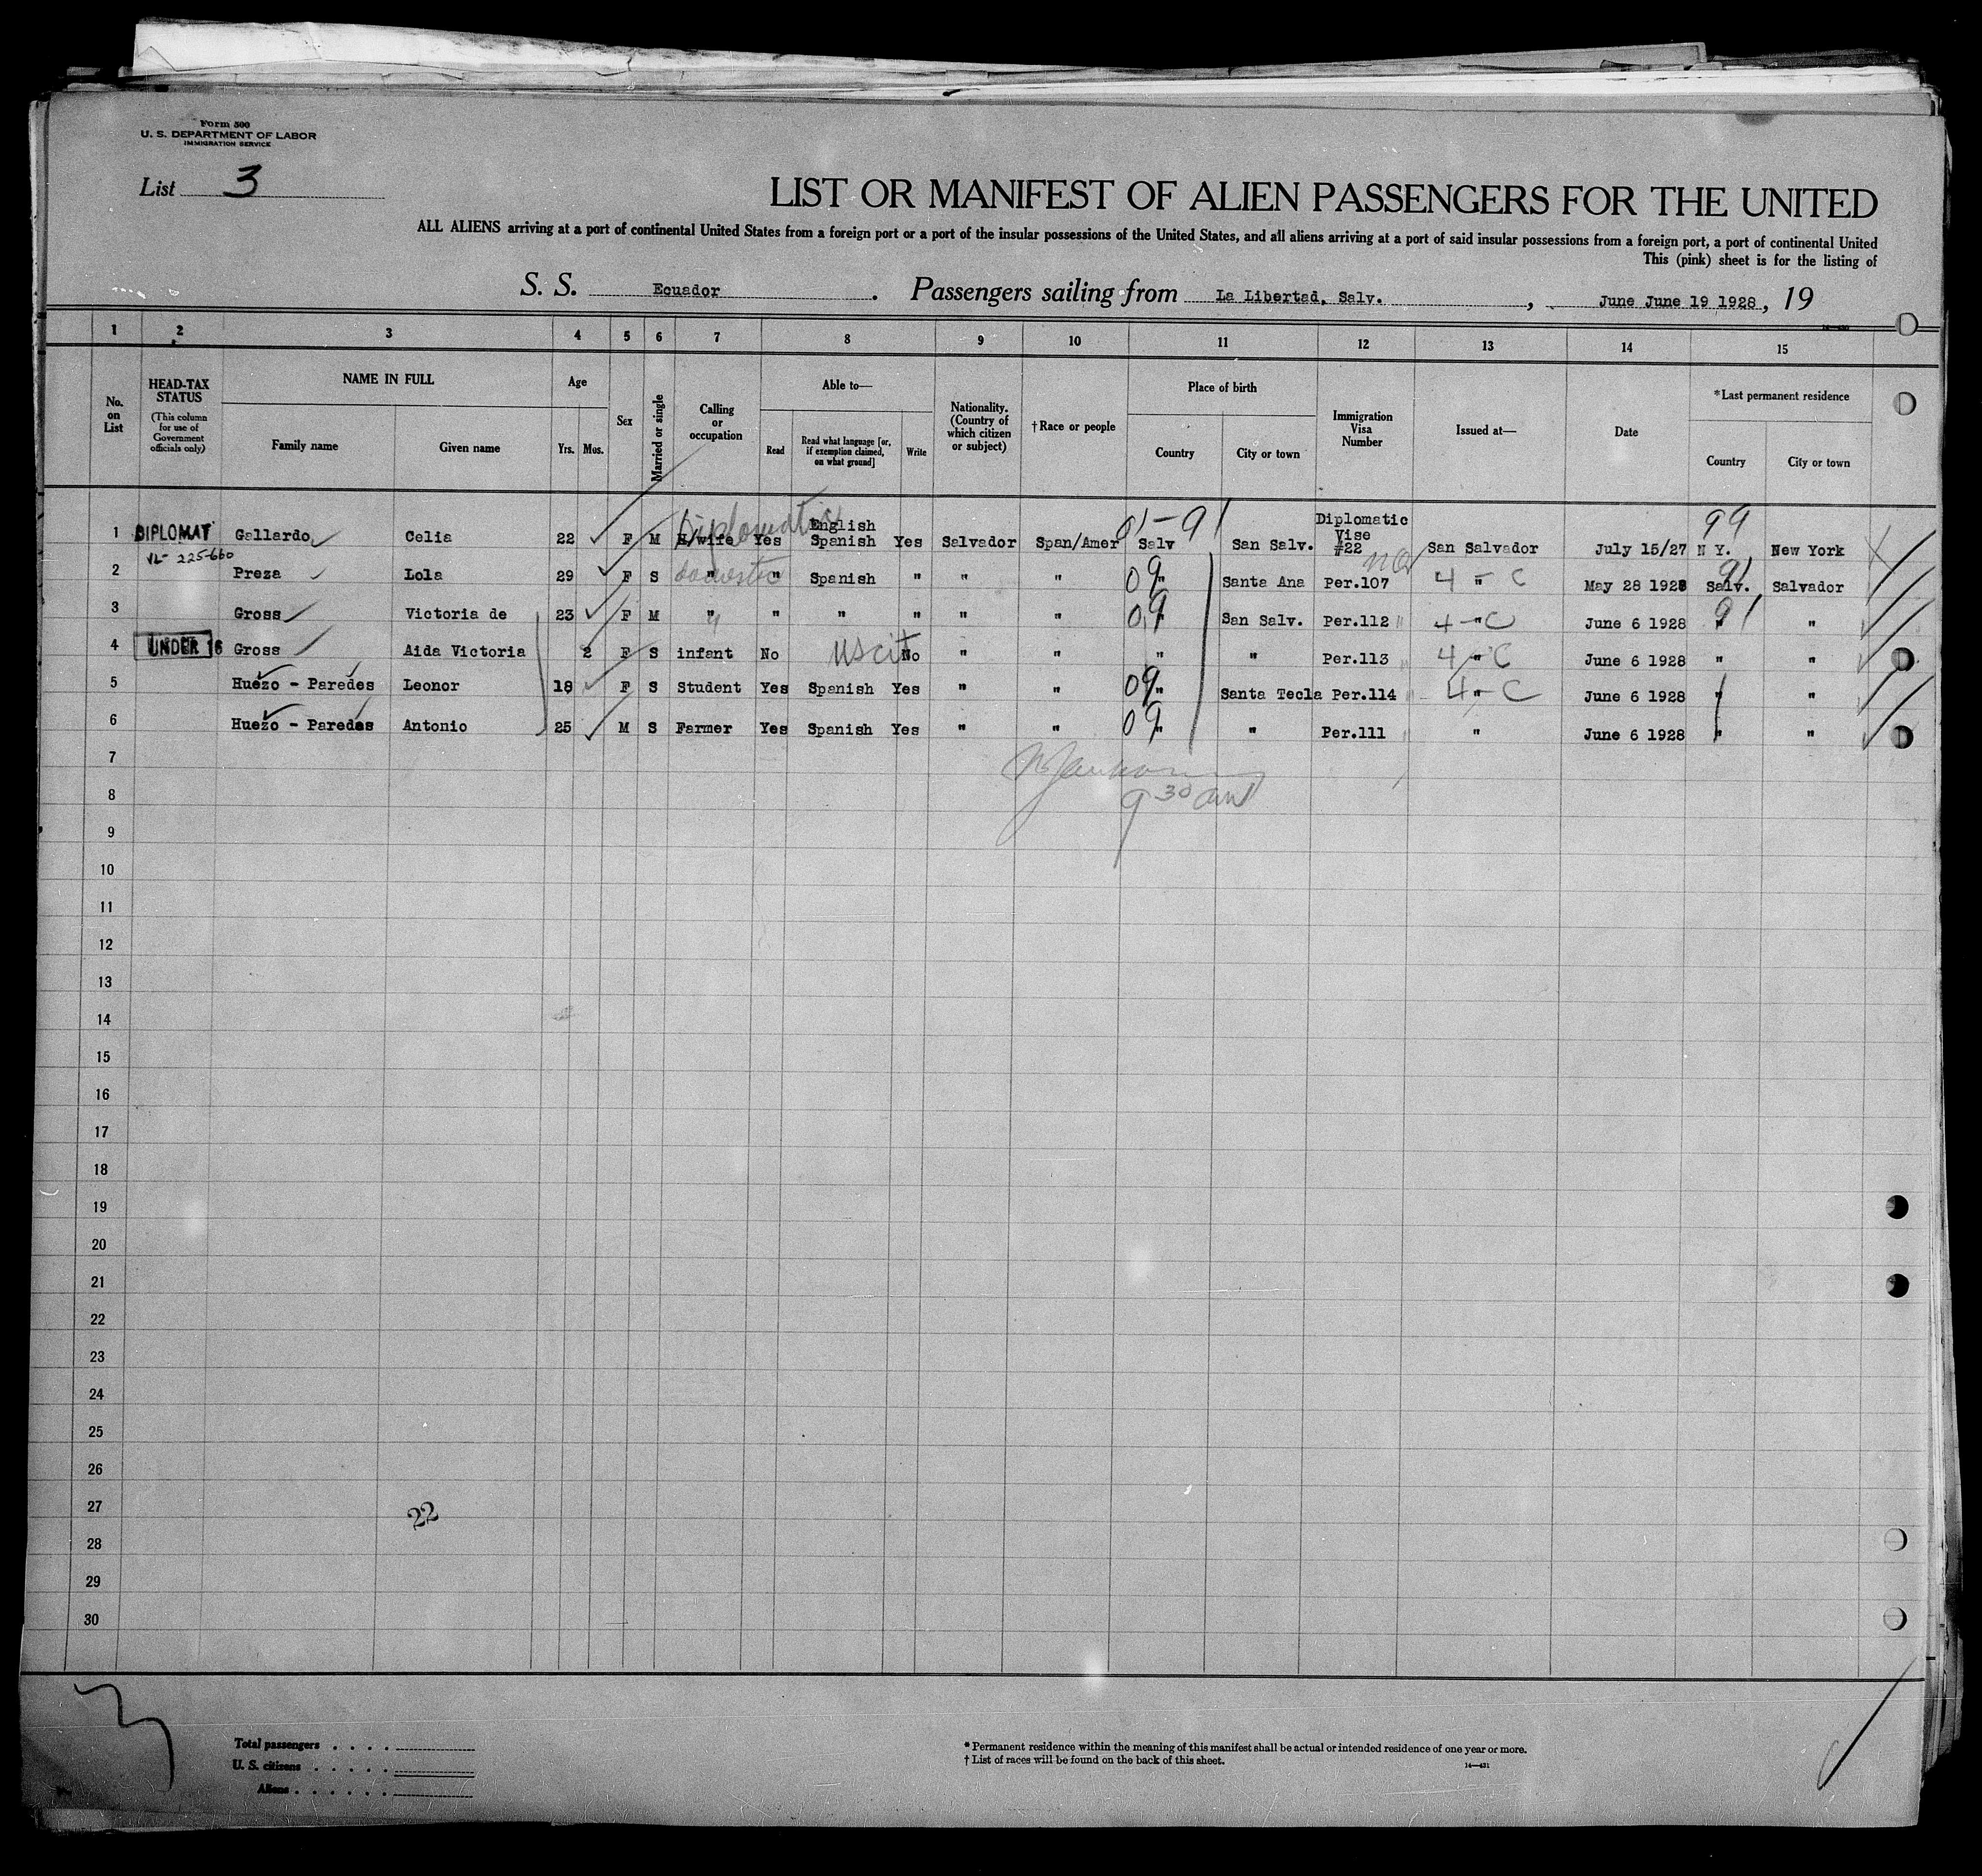 Form 500
U. S. DEPARTMENT OF LABOR
IMMIGRATION SERVICE
List 3
LIST OR MANIFEST OF ALIEN PASSENGERS FOR THE UNITED
ALL ALIENS arriving at a port of continental United States from a foreign port or a port of the insular possessions of the United States, and all aliens arriving at a port of said insular possessions from a foreign port, a port of continental United
This (pink) sheet is for the listing of
S. S. Ecuador. Passengers sailing from La Libertad, Salv., June June 19 1928, 19
1 2 3 4 5 6 7 8 9 10 11 12 13 14 15
No. on List
HEAD-TAX STATUS (This column for use of Government officials only)
NAME IN FULL
Family name Given name
Age
Yrs. Mos.
Sex
Married or single
Calling or occupation
Able to—
Read Read what language [or, if exemption claimed, on what ground] Write
Nationality. (Country of which citizen or subject)
†Race or people
Place of birth
Country City or town
Immigration Visa Number
Issued at—
Date
*Last permanent residence
Country City or town
1 DIPLOMAT Gallardo Celia 22 F M H/wife Diplomatic Yes English Spanish Yes Salvador Span/Amer Salv 01-91 San Salv. Diplomatic Vise #22 San Salvador July 15/27 N Y. 99 New York
VL- 225-660
2 Preza Lola 29 F S domestic " " Spanish " " " 09 " Santa Ana Per.107 4 - " C May 28 1928 Salv. 91 Salvador
3 Gross Victoria de 23 F M " " " " " " 09 " San Salv. Per.112 4 - " C June 6 1928 " 91 "
4 UNDER 16 Gross Aida Victoria 2 F S infant No US cit No " " " " Per.113 4 - " C June 6 1928 " "
5 Huezo - Paredes Leonor 18 F S Student Yes Spanish Yes " " 09 " Santa Tecla Per.114 4 - C June 6 1928 " "
6 Huezo - Paredes Antonio 25 M S Farmer Yes Spanish Yes " " 09 " " Per.111 " June 6 1928 " "
7
9 30 am
8
9
10
11
12
13
14
15
16
17
18
19
20
21
22
23
24
25
26
27 22
28
29
30
Total passengers . . . .
U. S. citizens . . . . .
Aliens . . . . . .
* Permanent residence within the meaning of this manifest shall be actual or intended residence of one year or more.
† List of races will be found on the back of this sheet.
14—431